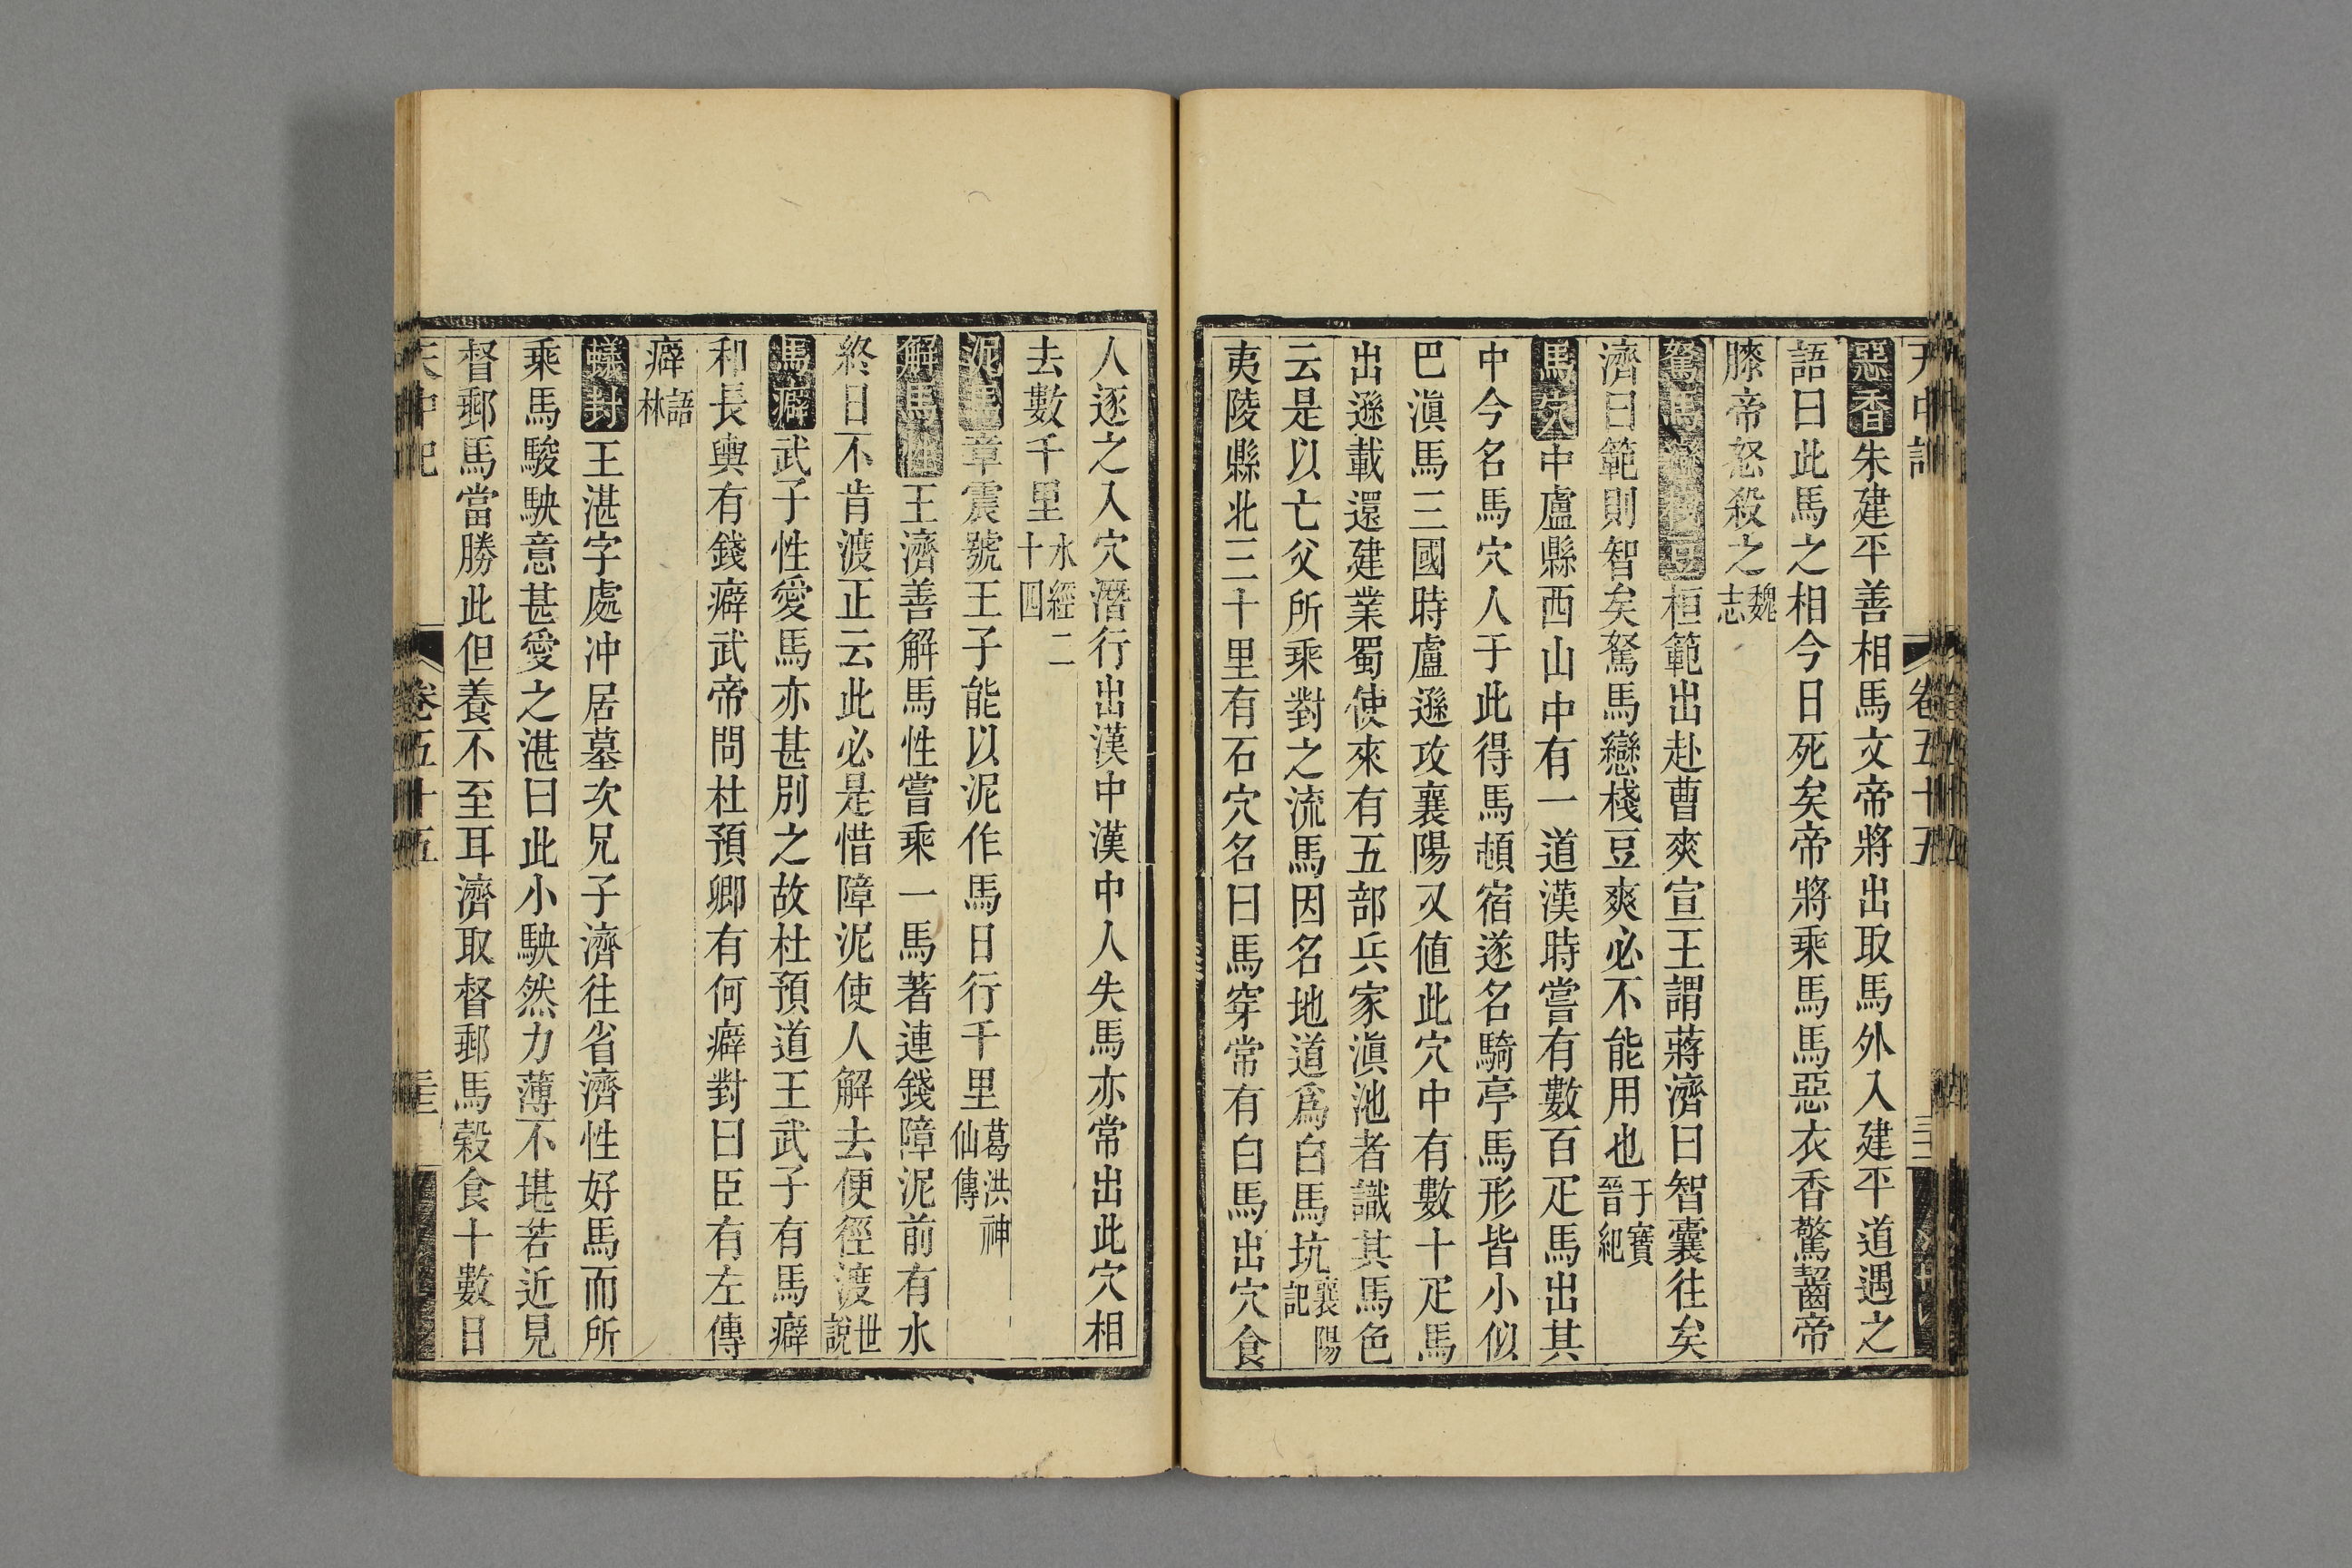 天中記
卷五十五
惡香朱建平善相馬文帝將出取馬外入建平道遇之
語曰此馬之相今日死矣帝將乘馬馬惡衣香驚齧帝
膝帝怒殺之魏志
駑馬戀棧豆桓範出赴曹爽宣王謂蔣濟曰智囊往矣
濟曰範則智矣駑馬戀棧豆爽必不能用也于寶晉紀
馬穴中盧縣西山中有一道漢時嘗有數百疋馬出其
中今名馬穴人于此得馬頓宿遂名騎亭馬形皆小似
巴滇馬三國時盧遜攻襄陽又值此穴中有數十疋馬
出遜載還建業蜀使來有五部兵家滇池者識其馬色
云是以亡父所乘對之流馬因名地道爲白馬坑襄陽記
夷陵縣北三十里有石穴名曰馬穿常有白馬出穴食
人逐之入穴潛行出漢中漢中人失馬亦常出此穴相
去數千里水經二十四
泥馬章震號王子能以泥作馬日行千里葛洪神仙傳
解馬性王濟善解馬性嘗乘一馬著連錢障泥前有水
終日不肯渡正云此必是惜障泥使人解去便徑渡世說
馬癖武子性愛馬亦甚別之故杜預道王武子有馬癖
和長輿有錢癖武帝問杜預卿有何癖對曰臣有左傳
癖語林
蟻封王湛字處冲居墓次兄子濟往省濟性好馬而所
乘馬駿駃意甚愛之湛曰此小駃然力薄不堪若近見
督郵馬當勝此但養不至耳濟取督郵馬穀食十數日
天中記
卷五十五